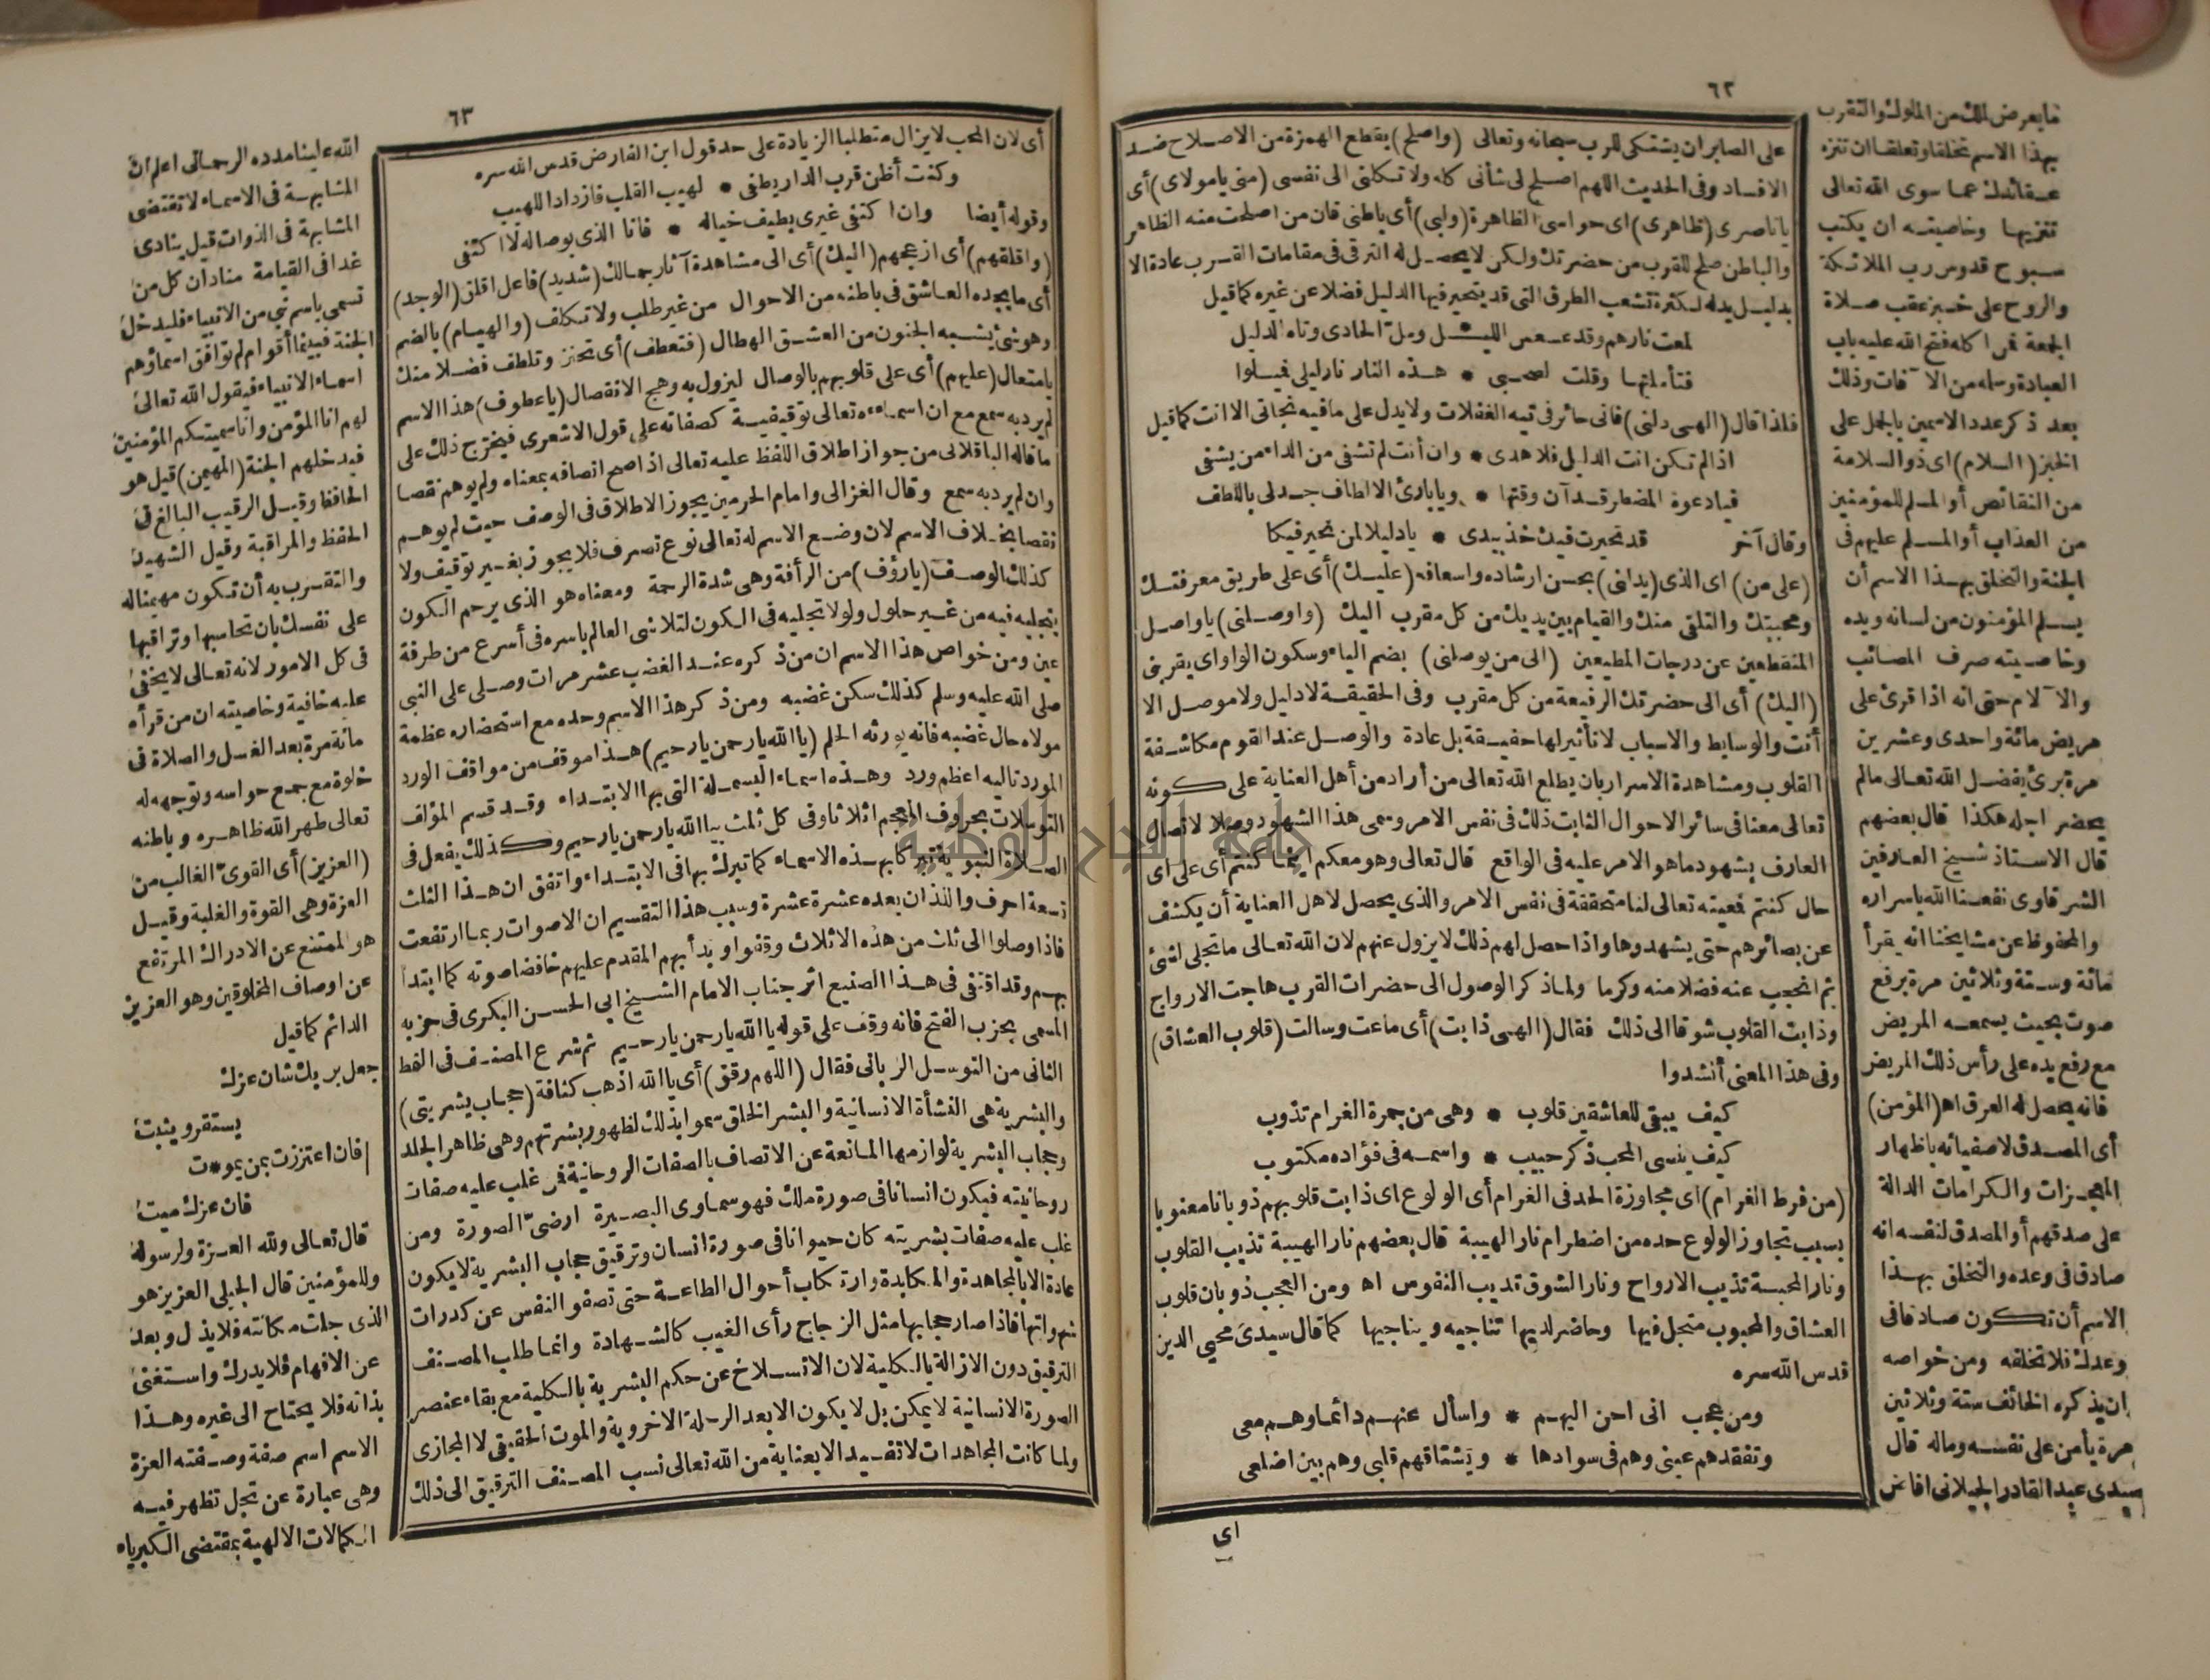 ٦٢
على الصابر ان يشتكى للرب سبحانه وتعالى (واصلح) بقطع الهمزة من الاصلاح ضد
الافساد وفى الحديث اللهم اصلح لى شأنى كله ولا تكلنى الى نفسى (منى يا مولاى) أى
يا ناصرى (ظاهرى) اى حواسى الظاهرة (ولبى) أى باطنى فان من اصلحت منه الظاهر
والباطن صلح للقرب من حضرتك ولكن لا يحصل له الترقى فى مقامات القرب عادة الا
بدليل يدله لكثرة تشعب الطرق التى قد يتحير فيها الدليل فضلا عن غيره كما قيل
لمعت نارهم وقد عسعس الليل * ومل الحادى وتاه الدليل
فتأملتها وقلت لصحبى * هذه النار نار ليلى فميلوا
فلذا قال (الهى دلنى) فانى حائر فى تيه الغفلات ولا يدل على ما فيه نجاتى الا انت كما قيل
اذا لم تكن انت الدليل فلا هدى * وان أنت لم تشفى من الداء من يشفى
فيا دعوة المضطر قد آن وقتها * ويا بارئ الالطاف جد لى باللطف
وقال آخر قد تحيرت فيك خذ بيدى * يا دليلا لمن تحير فيكا
(على من) اى الذى (يدلنى) بحسن ارشاده واسعافه (عليك) أى على طريق معرفتك
ومحبتك والتلقى منك والقيام بين يديك من كل مقرب اليك (واوصلنى) يا واصل
المنقطعين عن درجات المطيعين (الى من يوصلنى) بضم الياء وسكون الواو اى يقربنى
(اليك) أى الى حضرتك الرفيعة من كل مقرب وفى الحقيقة لا دليل ولا موصل الا
أنت والوسايط والاسباب لا تأثير لها حقيقة بل عادة والوصل عند القوم مكاشفة
القلوب ومشاهدة الاسرار بان يطلع الله تعالى من أراد من أهل العناية على كونه
تعالى معنا فى سائر الاحوال الثابت ذلك فى نفس الامر وسمى هذا الشهود وصلا لاتصال
العارف بشهود ما هو الامر عليه فى الواقع قال تعالى وهو معكم اينما كنتم أى على اى
حال كنتم فمعيته تعالى لنا متحققة فى نفس الامر والذى يحصل لاهل العناية أن يكشف
عن بصائرهم حتى يشهدوها واذا حصل لهم ذلك لا يزول عنهم لان الله تعالى ما تجلى لشئ
ثم انحجب عنه فضلا منه وكرما ولما ذكر الوصول الى حضرات القرب هاجت الارواح
وذابت القلوب شوقا الى ذلك فقال (الهى ذابت) أى ماعت وسالت (قلوب العشاق)
وفى هذا المعنى أنشدوا
كيف يبقى للعاشقين قلوب * وهى من جمرة الغرام تذوب
كيف ينسى المحب ذكر حبيب * واسمه فى فؤاده مكتوب
(من فرط الغرام) اى مجاوزة الحد فى الغرام أى الولوع اى ذابت قلوبهم ذوبانا معنويا
بسبب تجاوز الولوع حده من اضطرام نار الهيبة قال بعضهم نار الهيبة تذيب القلوب
ونار المحبة تذيب الارواح ونار الشوق تديب النفوس اه ومن العجب ذوبان قلوب
العشاق والمحبوب متجل فيها وحاضر لديها تناجيه ويناجيها كما قال سيدى محيى الدين
قدس الله سره
ومن عجب انى احن اليهم * واسأل عنهم دائما وهم معى
وتفقدهم عينى وهم فى سوادها * ويشتاقهم قلبى وهم بين اضلعى
اى
فما يعرض لك من الملوك والتقرب
بهذا الاسم تخلقا وتعلقا ان تنزه
عقائدك عما سوى الله تعالى
تنزيها وخاصيته ان يكتب
سبوح قدوس رب الملائكة
والروح على خبز عقب صلاة
الجمعة فمن اكله فتح الله عليه باب
العبادة وسلمه من الآفات وذلك
بعد ذكر عدد الاسمين بالجمل على
الخبز (السلام) اى ذو السلامة
من النقائص أو المسلم للمؤمنين
من العذاب أو المسلم عليهم فى
الجنة والتخلق بهذا الاسم أن
يسلم المؤمنون من لسانه ويده
وخاصيته صرف المصائب
والآلام حتى انه اذا قرئ على
مريض مائة واحدى وعشرين
مرة برئ بفضل الله تعالى ما لم
يحضر اجله هكذا قال بعضهم
قال الاستاذ شيخ العارفين
الشرقاوى نفعنا الله باسراره
والمحفوظ عن مشايخنا انه يقرأ
مائة وستة وثلاثين مرة برفع
صوت بحيث يسمعه المريض
مع رفع يده على رأس ذلك المريض
فانه يحصل له العرق اه (المؤمن)
أى المصدق لاصفيائه باظهار
المعجزات والكرامات الدالة
على صدقهم أو المصدق لنفسه انه
صادق فى وعده والتخلق بهذا
الاسم أن تكون صادقا فى
وعدك فلا تخلفه ومن خواصه
ان يذكره الخائف ستة وثلاثين
مرة يأمن على نفسه وماله قال
سيدى عبد القادر الجيلانى افاض
٦٣
أى لان المحب لا يزال متطلبا الزيادة على حد قول ابن الفارض قدس الله سره
وكنت أظن قرب الدار يطفى * لهيب القلب فازداد اللهيب
وقوله أيضا وان اكتفى غيرى بطيف خياله * فانا الذى بوصاله لا اكتفى
(واقلقهم) أى ازعجهم (اليك) أى الى مشاهدة آثار جمالك (شديد) فاعل اقلق (الوجد)
أى ما يجده العاشق فى باطنه من الاحوال من غير طلب ولا تكلف (والهيام) بالضم
وهو شئ يشبه الجنون من العشق الهطال (فتعطف) أى تحنن وتلطف فضلا منك
يا متعال (عليهم) أى على قلوبهم بالوصال ليزول به وهج الانفصال (يا عطوف) هذا الاسم
لم يرد به سمع مع ان اسماءه تعالى توقيفية كصفاته على قول الاشعرى فيخرج ذلك على
ما قاله الباقلانى من جواز اطلاق اللفظ عليه تعالى اذا صح اتصافه بمعناه ولم يوهم نقصا
وان لم يرد به سمع وقال الغزالى وامام الحرمين يجوز الاطلاق فى الوصف حيث لم يوهم
نقصا بخلاف الاسم لان وضع الاسم له تعالى نوع تصرف فلا يجوز بغير توقيف ولا
كذلك الوصف (يا رؤف) من الرأفة وهى شدة الرحمة ومعناه هو الذى يرحم الكون
بتجليه فيه من غير حلول ولولا تجليه فى الكون لتلاشى العالم باسره فى أسرع من طرفة
عين ومن خواص هذا الاسم ان من ذكره عند الغضب عشر مرات وصلى على النبى
صلى الله عليه وسلم كذلك سكن غضبه ومن ذكر هذا الاسم وحده مع استحضاره عظمة
مولاه حال غضبه فانه يورثه الحلم (يا الله يا رحمن يا رحيم) هذا موقف من مواقف الورد
المورد تاليه اعظم ورد وهذه اسماء البسملة التى بها الابتداء وقد قسم المؤلف
التوسلات بحروف المعجم اثلاثا وفى كل ثلث بيا الله يا رحمن يا رحيم وكذلك يفعل فى
الصلاة النبوية تبركا بهذه الاسماء كما تبرك بها فى الابتداء واتفق ان هذا الثلث
تسعة احرف واللذان بعده عشرة عشرة وسبب هذا التقسيم ان الاصوات ربما ارتفعت
فاذا وصلوا الى ثلث من هذه الاثلاث وقفوا وبدأ بهم المقدم عليهم خافضا صوته كما ابتدأ
بهم وقد اقتفى فى هذا الصنيع اثر جناب الامام الشيخ ابى الحسن البكرى فى حزبه
المسمى بحزب الفتح فانه وقف على قوله يا الله يا رحمن يا رحيم ثم شرع المصنف فى النمط
الثانى من التوسل الربانى فقال (اللهم رقق) أى يا الله اذهب كثافة (حجاب بشريتى)
والبشرية هى النشأة الانسانية والبشر الخلق سموا بذلك لظهور بشرتهم وهى ظاهر الجلد
وحجاب البشرية لوازمها المانعة عن الاتصاف بالصفات الروحانية فمن غلب عليه صفات
روحانيته فيكون انسانا فى صورة ملك فهو سماوى البصيرة ارضى الصورة ومن
غلب عليه صفات بشريته كان حيوانا فى صورة انسان وترقيق حجاب البشرية لا يكون
عادة الا بالمجاهدة والمكابدة وارتكاب أحوال الطاعة حتى تصفو النفس عن كدرات
شهواتها فاذا صار حجابها مثل الزجاج رأى الغيب كالشهادة وانما طلب المصنف
الترقيق دون الازالة بالكلية لان الانسلاخ عن حكم البشرية بالكلية مع بقاء عنصر
الصورة الانسانية لا يمكن بل لا يكون الا بعد الرحلة الاخروية والموت الحقيقى لا المجازى
ولما كانت المجاهدات لا تفيد الا بعناية من الله تعالى نسب المصنف الترقيق الى ذلك
الله علينا مدده الرحمانى اعلم ان
المشابهة فى الاسماء لا تقتضى
المشابهة فى الذوات قيل ينادى
غدا فى القيامة مناد ان كل من
تسمى باسم نبى من الانبياء فليدخل
الجنة فيبقى أقوام لم توافق اسماؤهم
اسماء الانبياء فيقول الله تعالى
لهم انا المؤمن وانا سميتكم المؤمنين
فيدخلهم الجنة (المهيمن) قيل هو
الحافظ وقيل الرقيب البالغ فى
الحفظ والمراقبة وقيل الشهيد
والتقرب به أن تكون مهيمنا له
على نفسك بان تحاسبها وتراقبها
فى كل الامور لانه تعالى لا يخفى
عليه خافية وخاصيته ان من قرأه
مائة مرة بعد الغسل والصلاة فى
خلوة مع جمع حواسه وتوجهه له
تعالى طهر الله ظاهره وباطنه
(العزيز) أى القوى الغالب من
العزة وهى القوة والغلبة وقيل
هو الممتنع عن الادراك المرتفع
عن اوصاف المخلوقين وهو العزيز
الدائم كما قيل
جعل بربك شان عزك
يستقر ويثبت
فان اعتززت بمن يموت
فان عزك ميت
قال تعالى ولله العزة ولرسوله
وللمؤمنين قال الجيلى العزيز هو
الذى جلت مكانته فلا يذل وبعد
عن الافهام فلا يدرك واستغنى
بذاته فلا يحتاج الى غيره وهذا
الاسم اسم صفة وصفته العزة
وهى عبارة عن تجل تظهر فيه
الكمالات الالهية بمقتضى الكبرياء
جامعة النجاح الوطنية